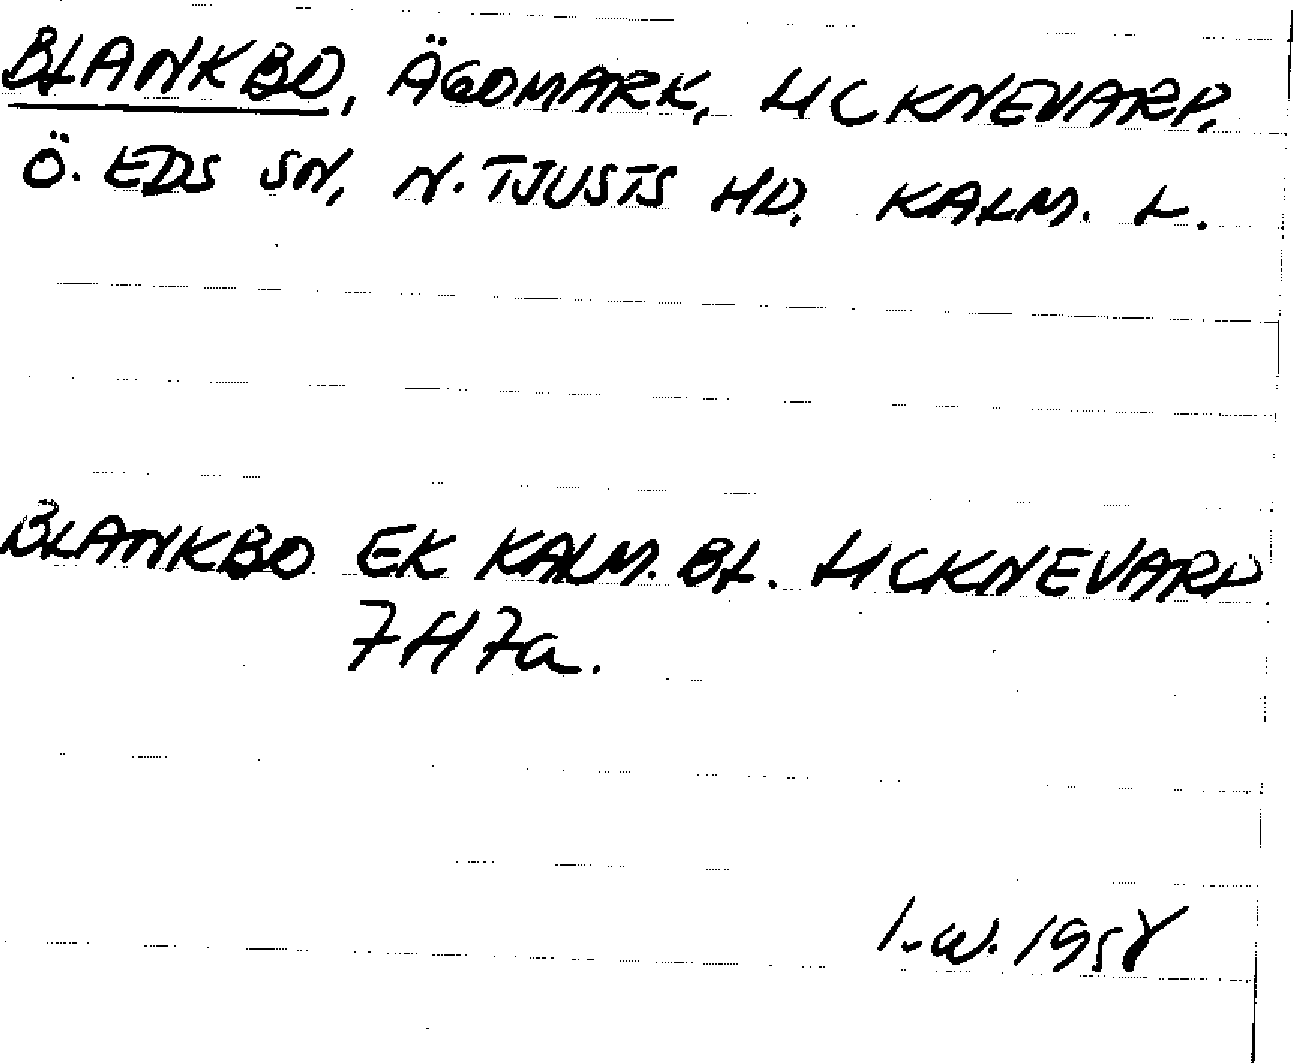 BLANKBO, ÄGOMARK, LICKNEVARP,
Ö. EDS SN, N. TJUSTS HD, KALM. L.
BLANKBO EK KALM. BL. LICKNEVARP
7H 7a.
I.W. 1958